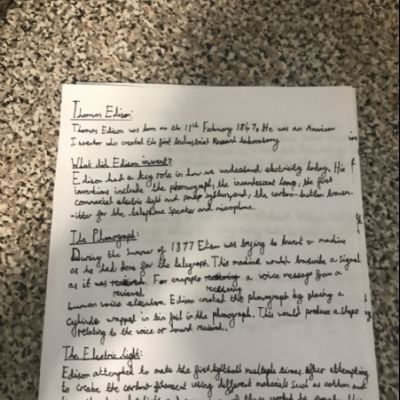 Thomas Edison:
Thomas Edison was born on the 11th February 1847, He was an American
Inventor who created the first Industrial Research Laboratory
What did Edison invent?
Edison had a key role in how we understand electricity today. His
inventions include the phonograph, the incandescent lamp, the first
commercial electric light and the carbon-button transm-
-itter for the telephone speaker and microphone.
The Phonograph:
During the summer of 1877 Edison was trying to invent a machine
as he had done for the telegraph. This machine would transcribe a signal
as it was recieved. For example recieving a voice message from a
human voice Edison created the phonograph by placing a
cylinder wrapped in tin foil in the phonograph. This would produce a shape
relating to the voice or sound recieved.
The Electric Light:
Edison attempted to make the first lightbulb multiple times. After attempting
to create the carbon filament using different materials such as cotton and